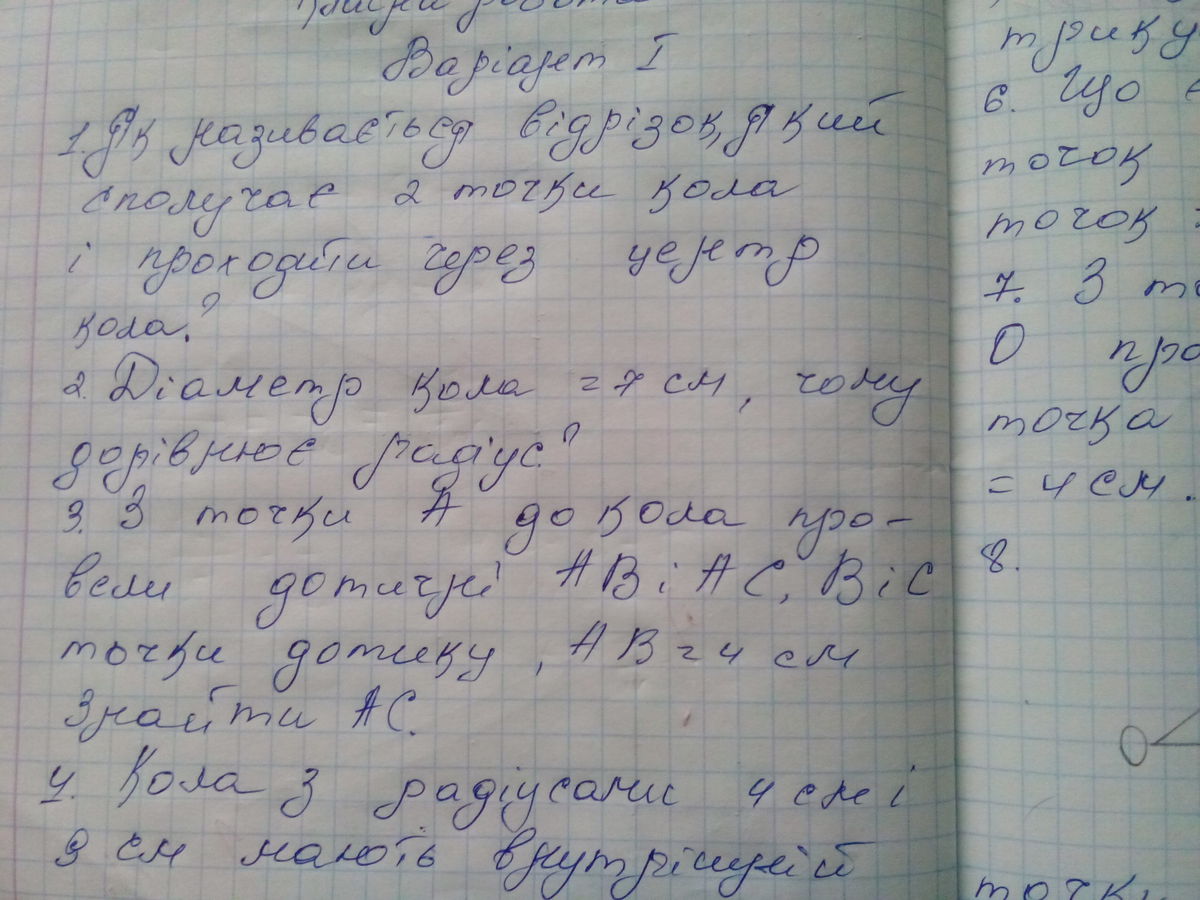 Варіант I
1. Як називається відрізок, який
сполучає 2 точки кола
і проходить через центр
кола?
2. Діаметр кола = 7 см, чому
дорівнює радіус?
3. З точки А до кола про-
вели дотичні АВ і АС, В і С
точки дотику, АВ = 4 см
Знайти АС.
4. Кола з радіусами 4 см і
9 см мають внутрішній
трику
6. Що є
точок
точок
7. З т
О про
точка
= 4 см.
8.
О
точки